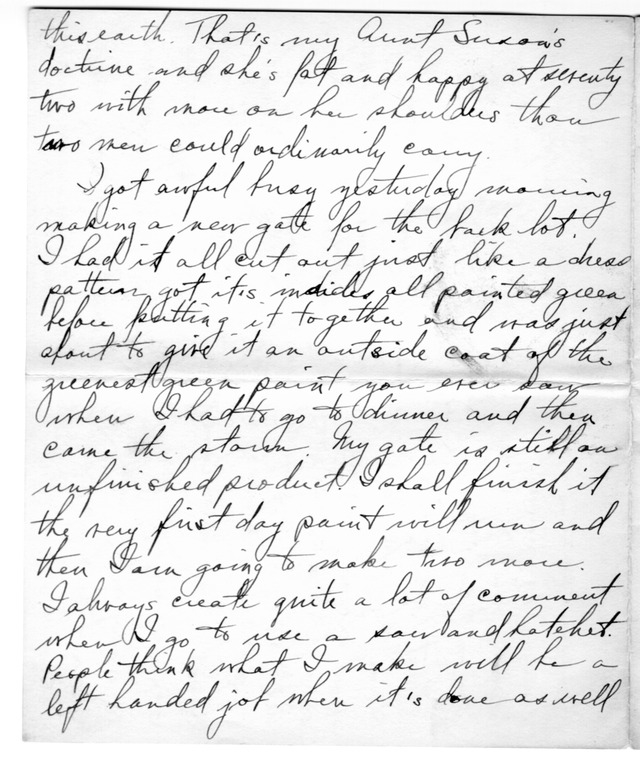 this earth. That's my Aunt Susan's
doctrine and she's fat and happy at seventy
two with more on her shoulders than
two men could ordinarily carry.
I got awful busy yesterday morning
making a new gate for the back lot.
I had it all cut out just like a dress
pattern, got it's insides all painted green
before putting it together and was just
about to give it an outside coat of the
greenest green paint you ever saw
when I had to go to dinner and then
came the storm. My gate is still an
unfinished product. I shall finish it
the very first day paint will run and
then I am going to make two more.
I always create quite a lot of comment
when I go to use a saw and hatchet.
People think what I make will be a
left handed job when it's done as well